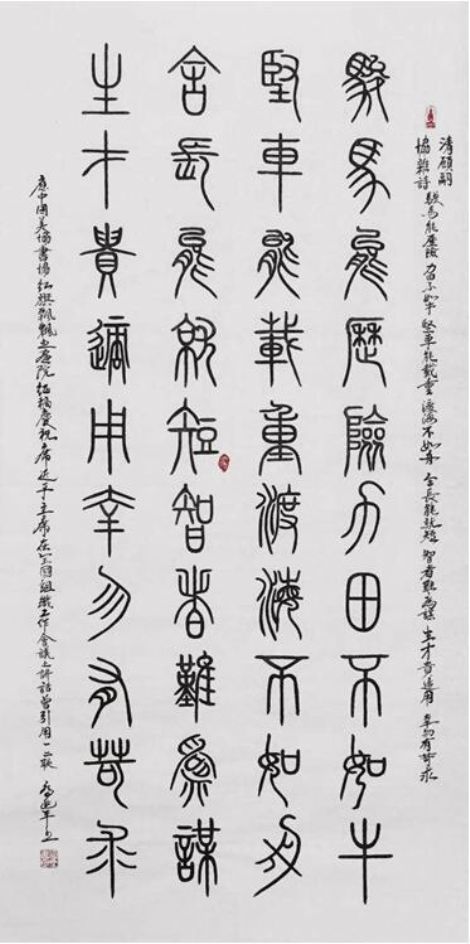 清顧嗣
協雜詩 駿馬能歷險 力田不如牛 堅車能載重 渡海不如舟 舍長能就短 智者難為謀 生才貴適用 幸勿有苛求
駿馬能歷險力田不如牛
堅車能載重渡海不如舟
舍長能就短智者難為謀
生才貴適用幸勿有苛求
應中國美協書協紅旗飄飄書畫院 慶祝 近平主席在全國組織工作會議上講話曾引用